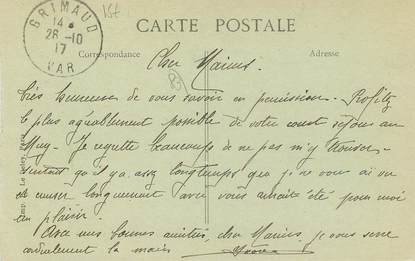 GRIMAUD
14 *
28 -10
17
VAR
CARTE POSTALE
Correspondance
Adresse
Cher Marius.
Très heureuse de vous savoir en permission. Profitez
le plus agréablement possible de votre court séjour au
Muy. Je regrette beaucoup de ne pas m'y trouver
surtout qu'il y a assez longtemps que je ne vous ai vu
et causer longuement avec vous aurait été pour moi
un plaisir.
Avec mes bonnes amitiés, cher Marius, je vous serre
cordialement la main
Imp. Le Deley, Paris